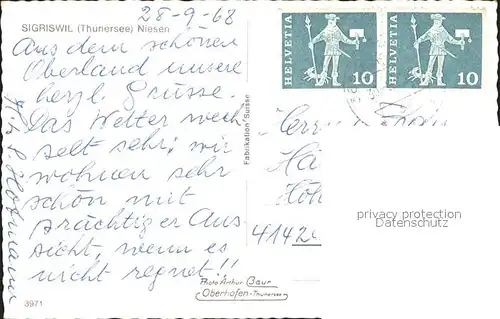 28-9-68
SIGRISWIL (Thunersee) Niesen
Aus dem schönen
Oberland unsere
herzl. Grüsse.
Das Wetter wech
selt sehr; wir
wohnen sehr
schön mit
prächtiger Aus-
sicht, wenn es
nicht regnet!!
Hofmann
3971
Photo Arthur Baur
Oberhofen-Thunersee
Fabrikation Suisse
HELVETIA 10
HELVETIA 10
Herrn
Hä
Höh
4142
privacy protection
Datenschutz